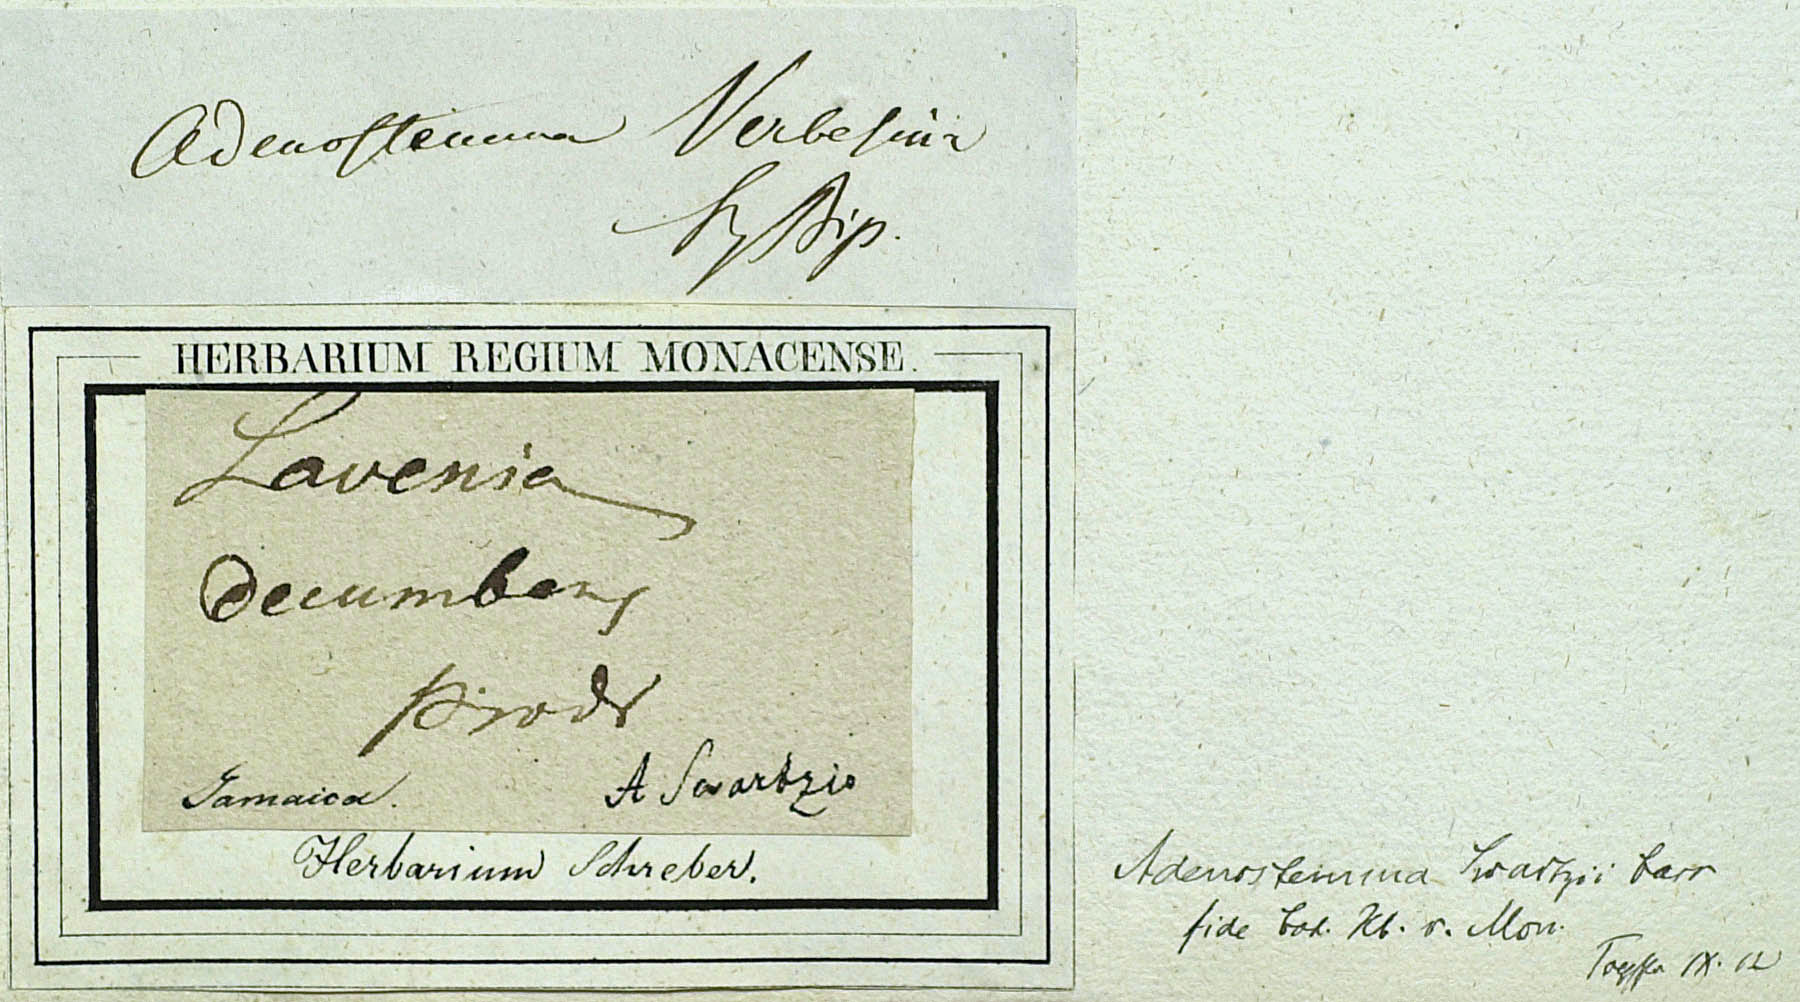 Adenostemma Verbesina
Sz Bip.
HERBARIUM REGIUM MONACENSE.
Lavenia
decumbens
prodr
Jamaica. A Swartzio
Herbarium Schreber.
Adenostemma Swartzii Cass
fide Cod. Hb. r. Mon.
IX. 12